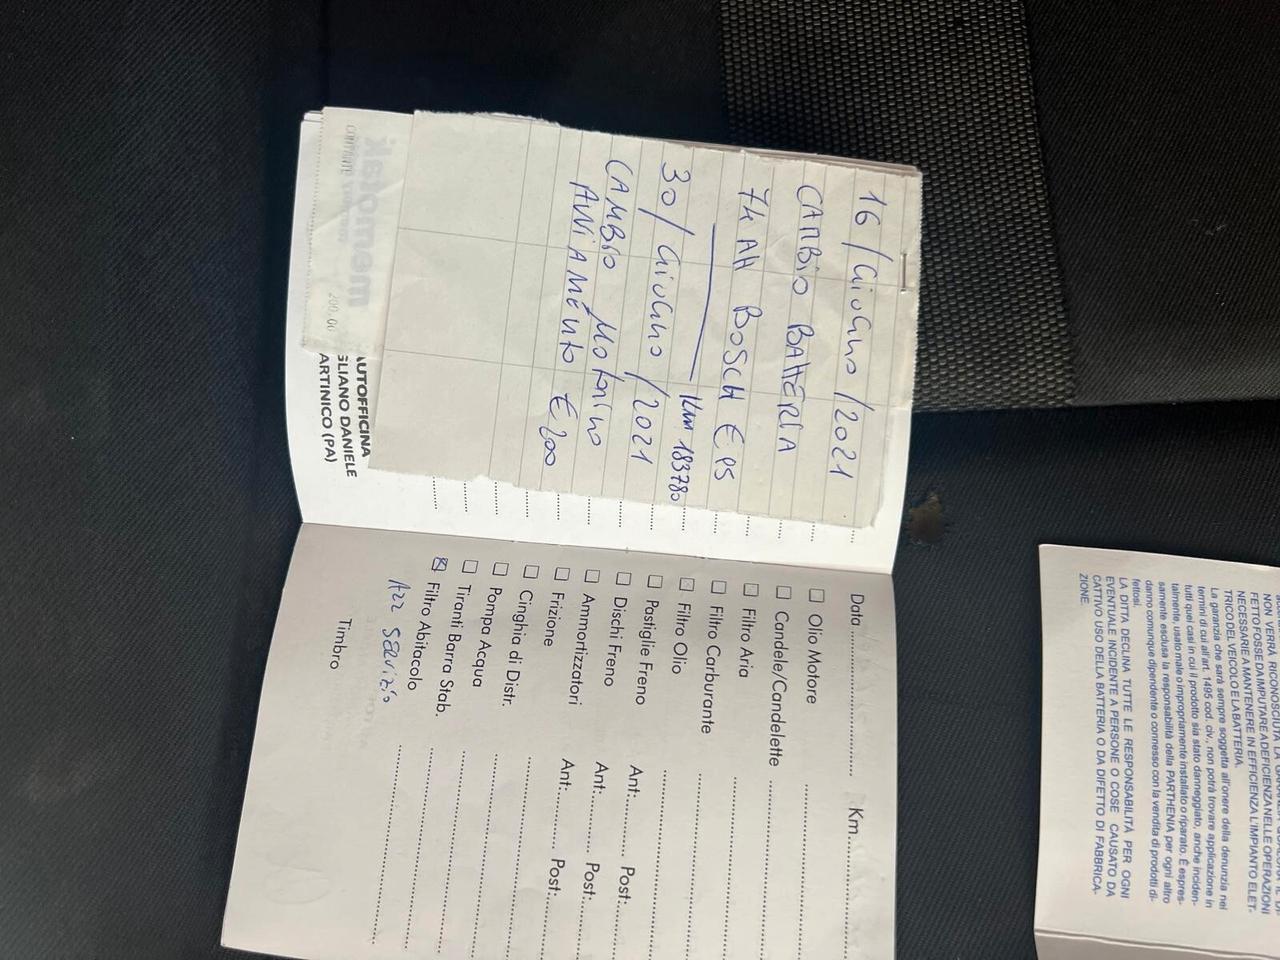 16/GIUGNO/2021
CAMBIO BATTERIA
74 AH BOSCH € 95
Km 183780
30/GIUGNO/2021
CAMBIO MOTORINO
AVVIAMENTO € 200
200,00
UTOFFICINA
GLIANO DANIELE
ARTINICO (PA)
Data.................... Km..............
Olio Motore
Candele/Candelette
Filtro Aria
Filtro Carburante
Filtro Olio
Pastiglie Freno Ant:.......... Post:..........
Dischi Freno Ant:.......... Post:..........
Ammortizzatori Ant:.......... Post:..........
Frizione
Cinghia di Distr.
Pompa Acqua
Tiranti Barra Stab.
Filtro Abitacolo
AZZ SERVIZIO
Timbro
NON VERRÀ RICONOSCIUTA LA
FETTO FOSSE DA IMPUTARE A DEFICIENZA NELLE OPERAZIONI
NECESSARIE A MANTENERE IN EFFICIENZA L'IMPIANTO ELET-
TRICO DEL VEICOLO E LA BATTERIA.
La garanzia che sarà sempre soggetta all'onere della denunzia nei
termini di cui all'art. 1495 cod. civ., non potrà trovare applicazione in
tutti quei casi in cui il prodotto sia stato danneggiato, anche inciden-
talmente, usato male o impropriamente installato o riparato. È espres-
samente esclusa la responsabilità della PARTHENIA per ogni altro
danno comunque dipendente o connesso con la vendita di prodotti di-
fettosi.
LA DITTA DECLINA TUTTE LE RESPONSABILITÀ PER OGNI
EVENTUALE INCIDENTE A PERSONE O COSE CAUSATO DA
CATTIVO USO DELLA BATTERIA O DA DIFETTO DI FABBRICA-
ZIONE.